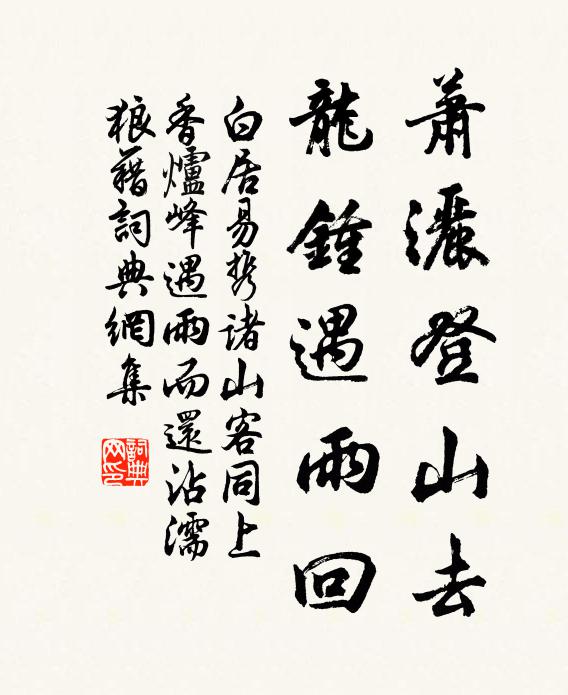 蕭灑登山去
龍鍾遇雨回
白居易携諸山客同上
香爐峰遇雨而還沾濡
狼藉詞典網集
詞典網印